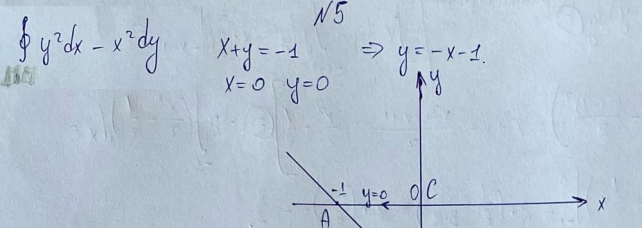 N5
∮ y²dx - x²dy   x+y=-1   ⇒ y=-x-1.
x=0   y=0
y
-1   y=0   0   C   x
A